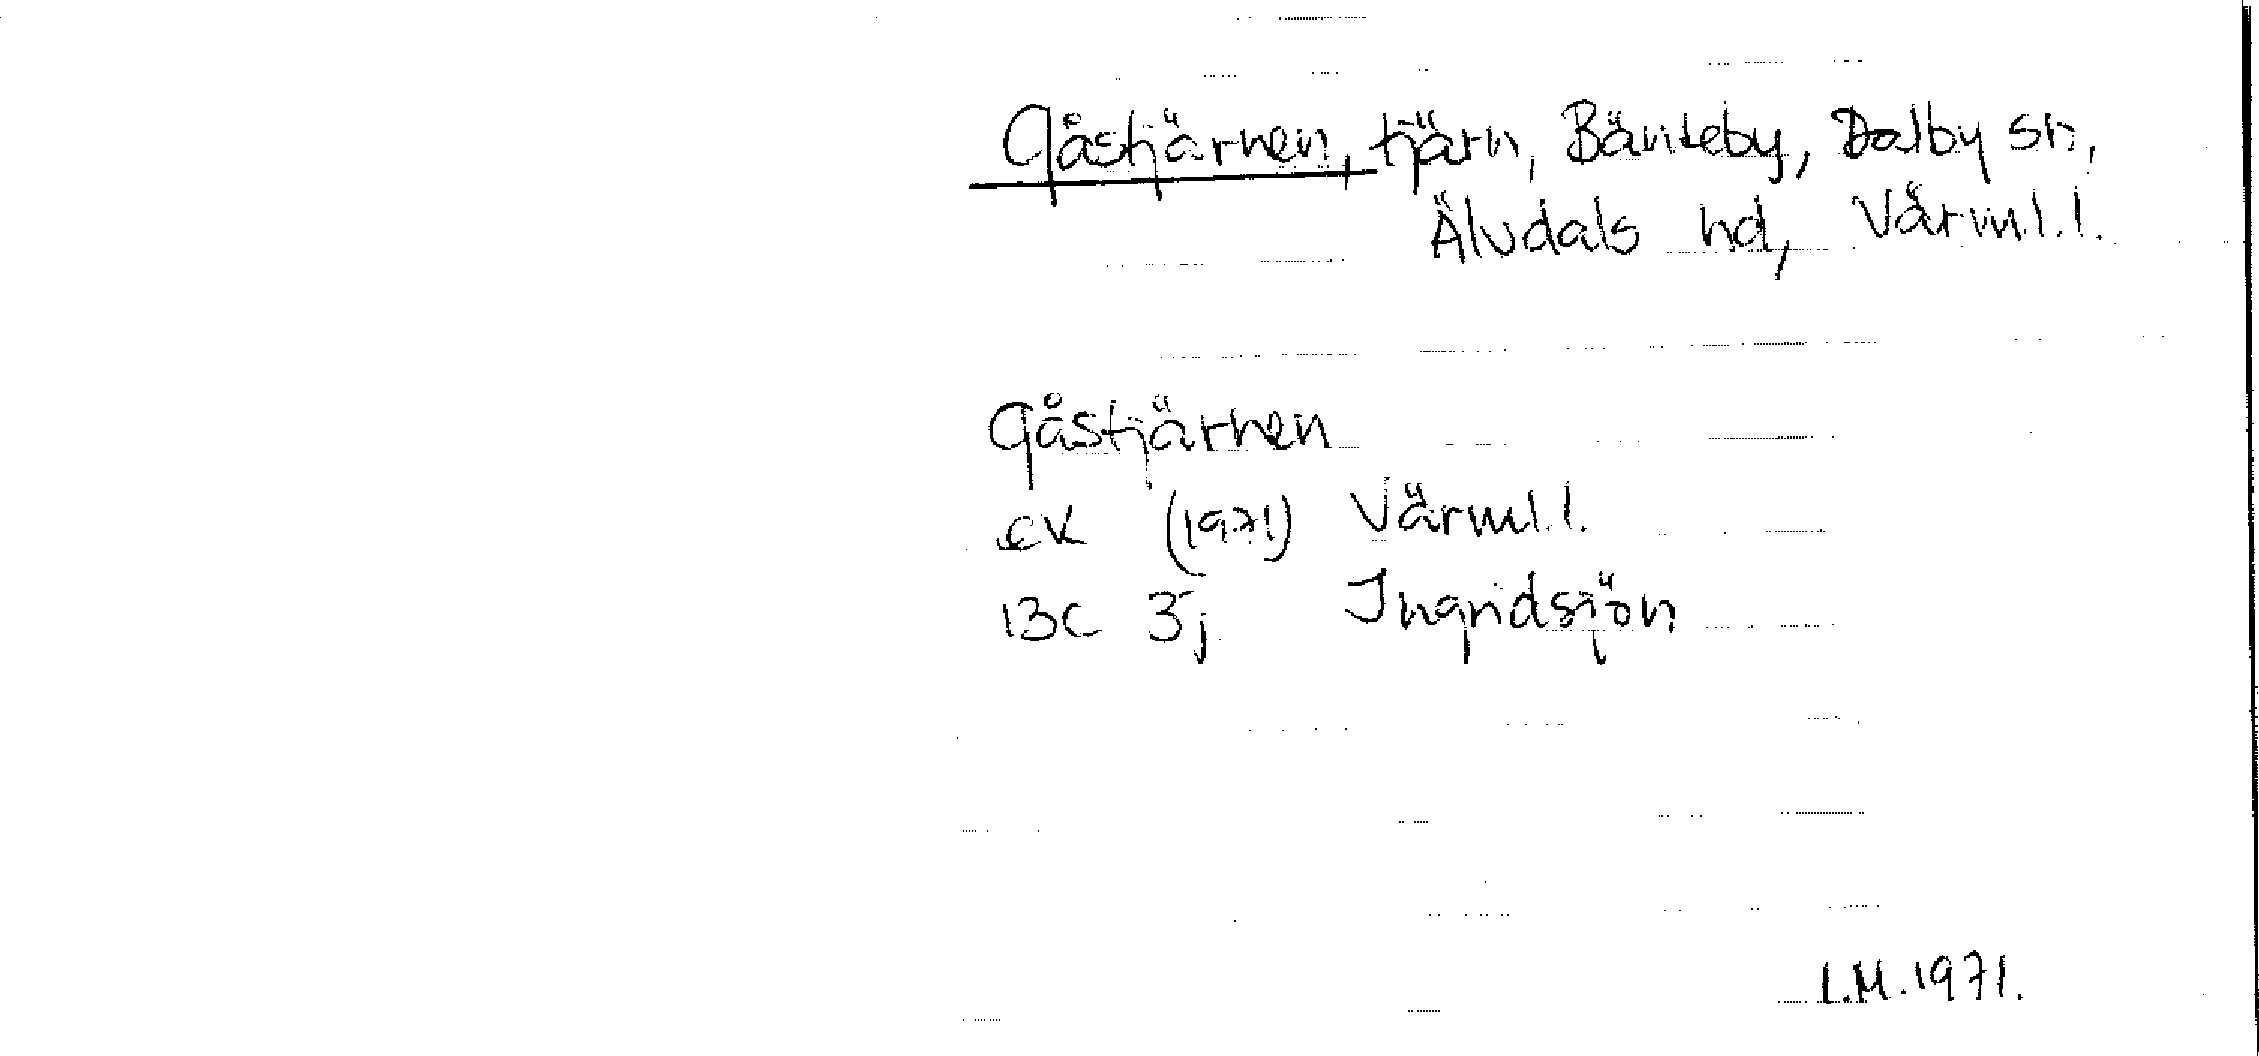 Gåstjärnen, tjärn, Bänteby, Dalby sn,
Älvdals hd, Värml. l.
Gåstjärnen
EK (1971) Värml. l.
13C 3j Ingridsjön
L.M. 1971.